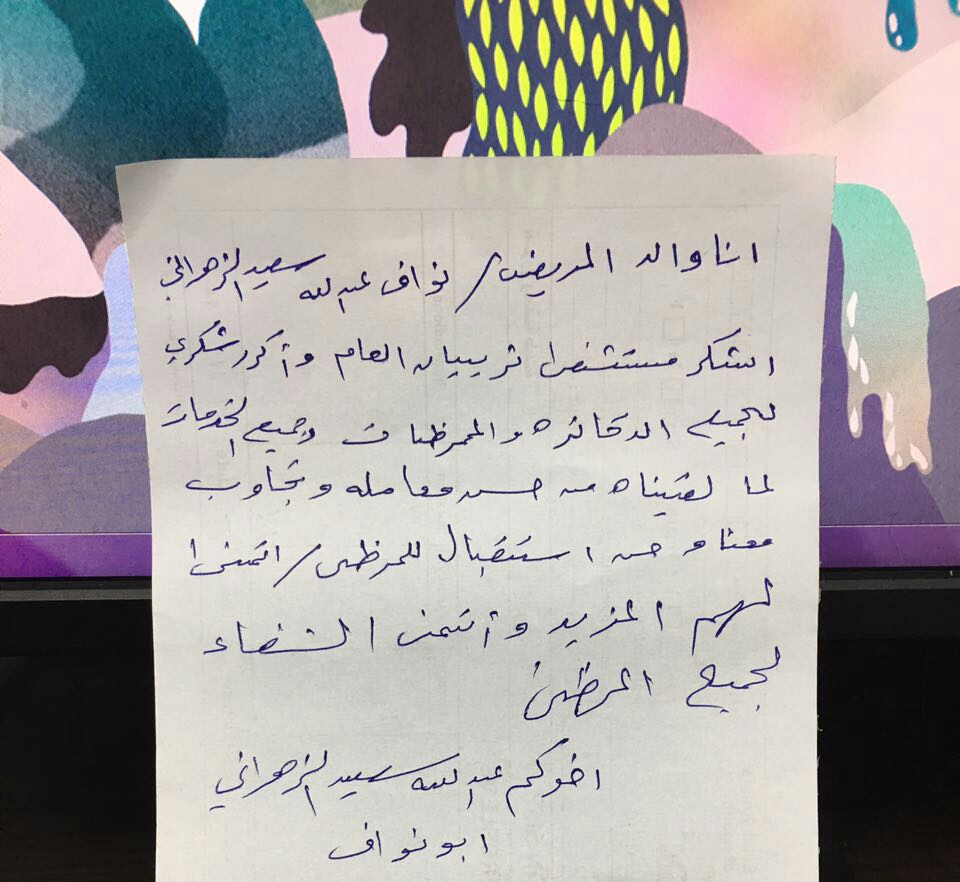 انا والد المريض / نواف عبدالله سعيد الزهراني
اشكر مستشفى العام وأكرر شكري
لجميع الدكاتره والممرظات وجميع الخدمات
لما لقيناه من حسن معامله وتجاوب
معنا وحسن استقبال للمرظى / اتمنى
لهم المزيد وأتمنى الشفاء
لجميع المرظى
اخوكم عبدالله سعيد الزهراني
ابو نواف